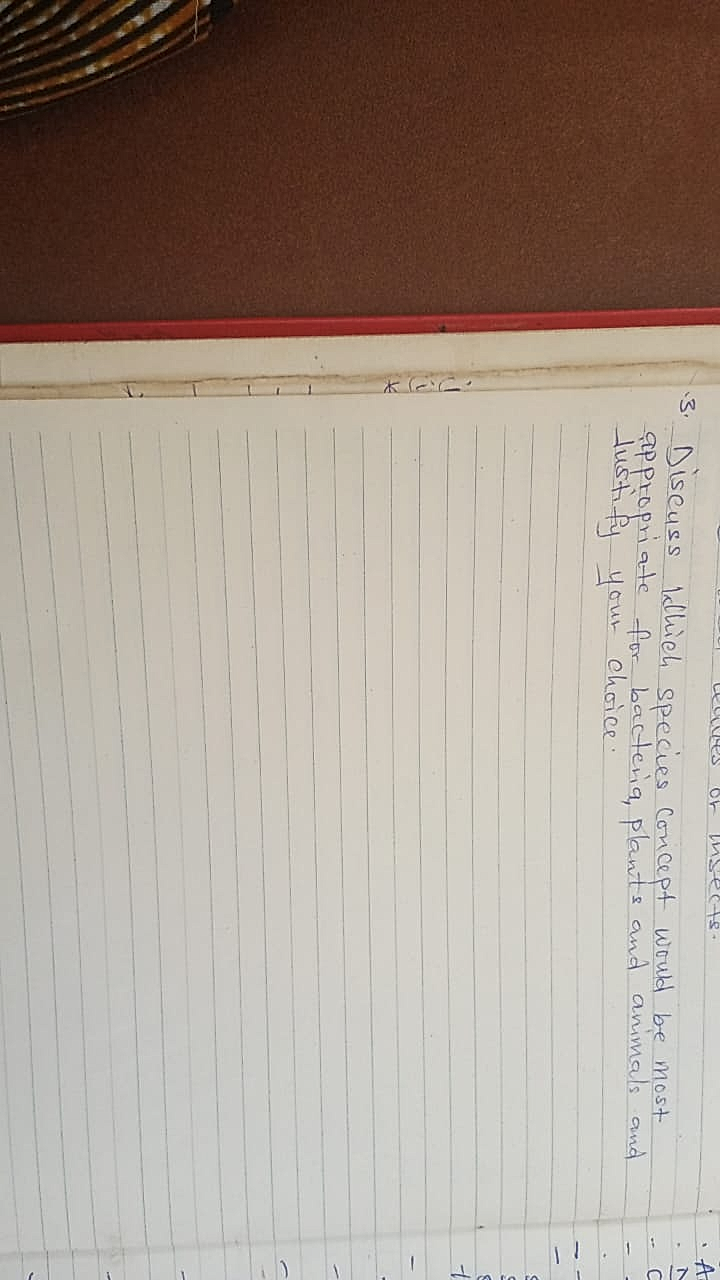 or insects.
3. Discuss which species concept would be most
appropriate for bacteria, plants and animals and
Justify your choice.